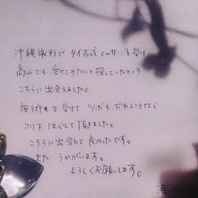 沖縄旅行で タイ古式マッサージを受け
高山でも 受けられたらと 探していたところ
こちらに出会えました。
施術を 受けて ツボを
コリをほぐして頂きました。
こちらに出会えて 良かったです。
また うかがいます。
よろしくお願いします。